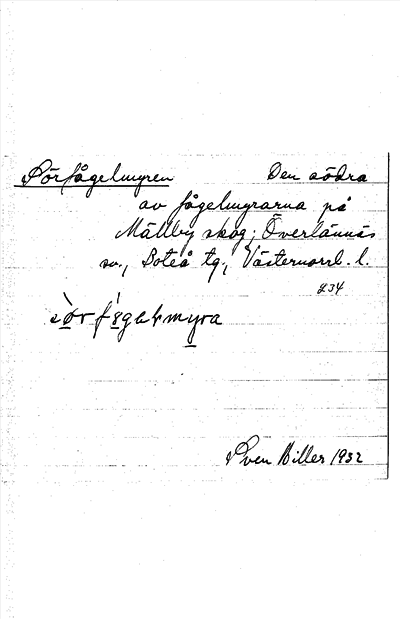 Sörfågelmyren Den södra
av fågelmyrarna på
Mällby skog; Överlännäs
sn., Boteå tg., Västernorrl. l.
234
sørfågelmyra
Sven Biller 1932